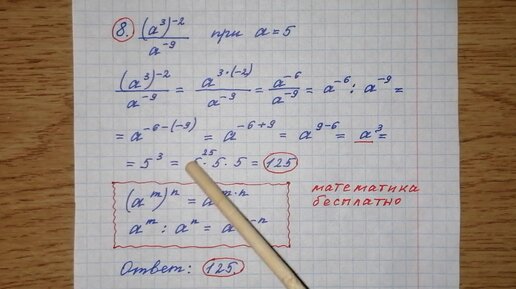 8. (a³)⁻² / a⁻⁹ при a = 5
(a³)⁻² / a⁻⁹ = a³·⁽⁻²⁾ / a⁻⁹ = a⁻⁶ / a⁻⁹ = a⁻⁶ : a⁻⁹ =
= a⁻⁶⁻⁽⁻⁹⁾ = a⁻⁶⁺⁹ = a⁹⁻⁶ = a³ =
= 5³ = 5 · 5 · 5 = 125
25
(aᵐ)ⁿ = aᵐ·ⁿ
aᵐ : aⁿ = a ⁻ⁿ
математика
бесплатно
Ответ: 125.